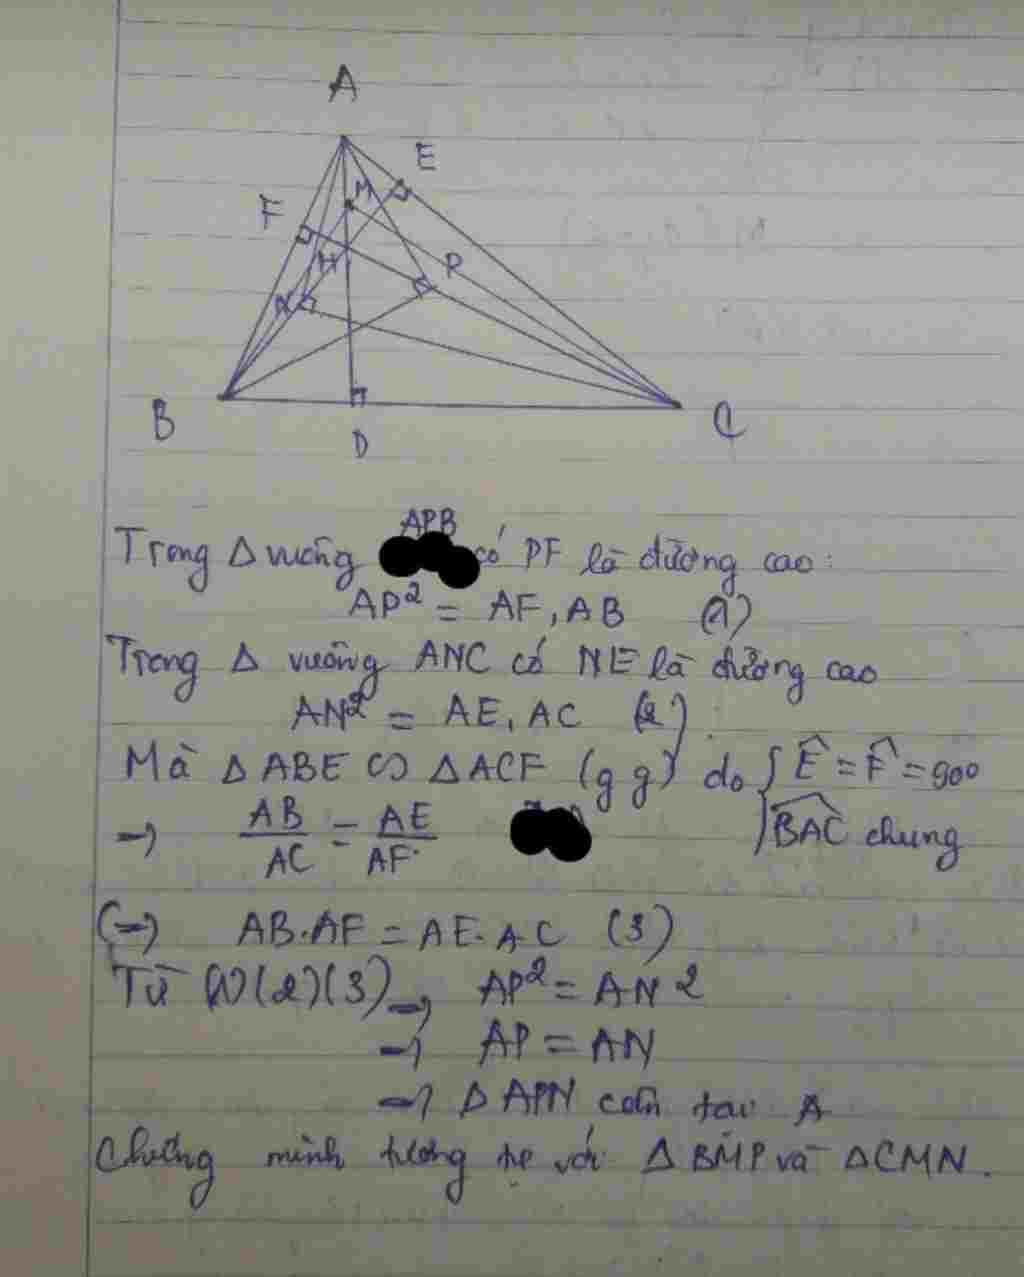 A
E
M
F
H
P
N
B
C
D
APB
Trong Δ vuông có PF là đường cao:
AP² = AF, AB (1)
Trong Δ vuông ANC có NE là đường cao
AN² = AE, AC (2)
Mà Δ ABE ∽ Δ ACF (g g) do { Ê = F̂ = 900
→ AB/AC = AE/AF. BAC chung
(→) AB.AF = AE.AC (3)
Từ (1)(2)(3) → AP² = AN 2
→ AP = AN
→ Δ APN cân tại A
Chứng minh tương tự với Δ BMP và ΔCMN.